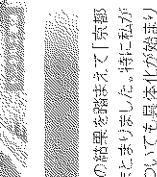 の結果を踏まえて「京都
まとまりました。特に私が
ついても具体化が始まり